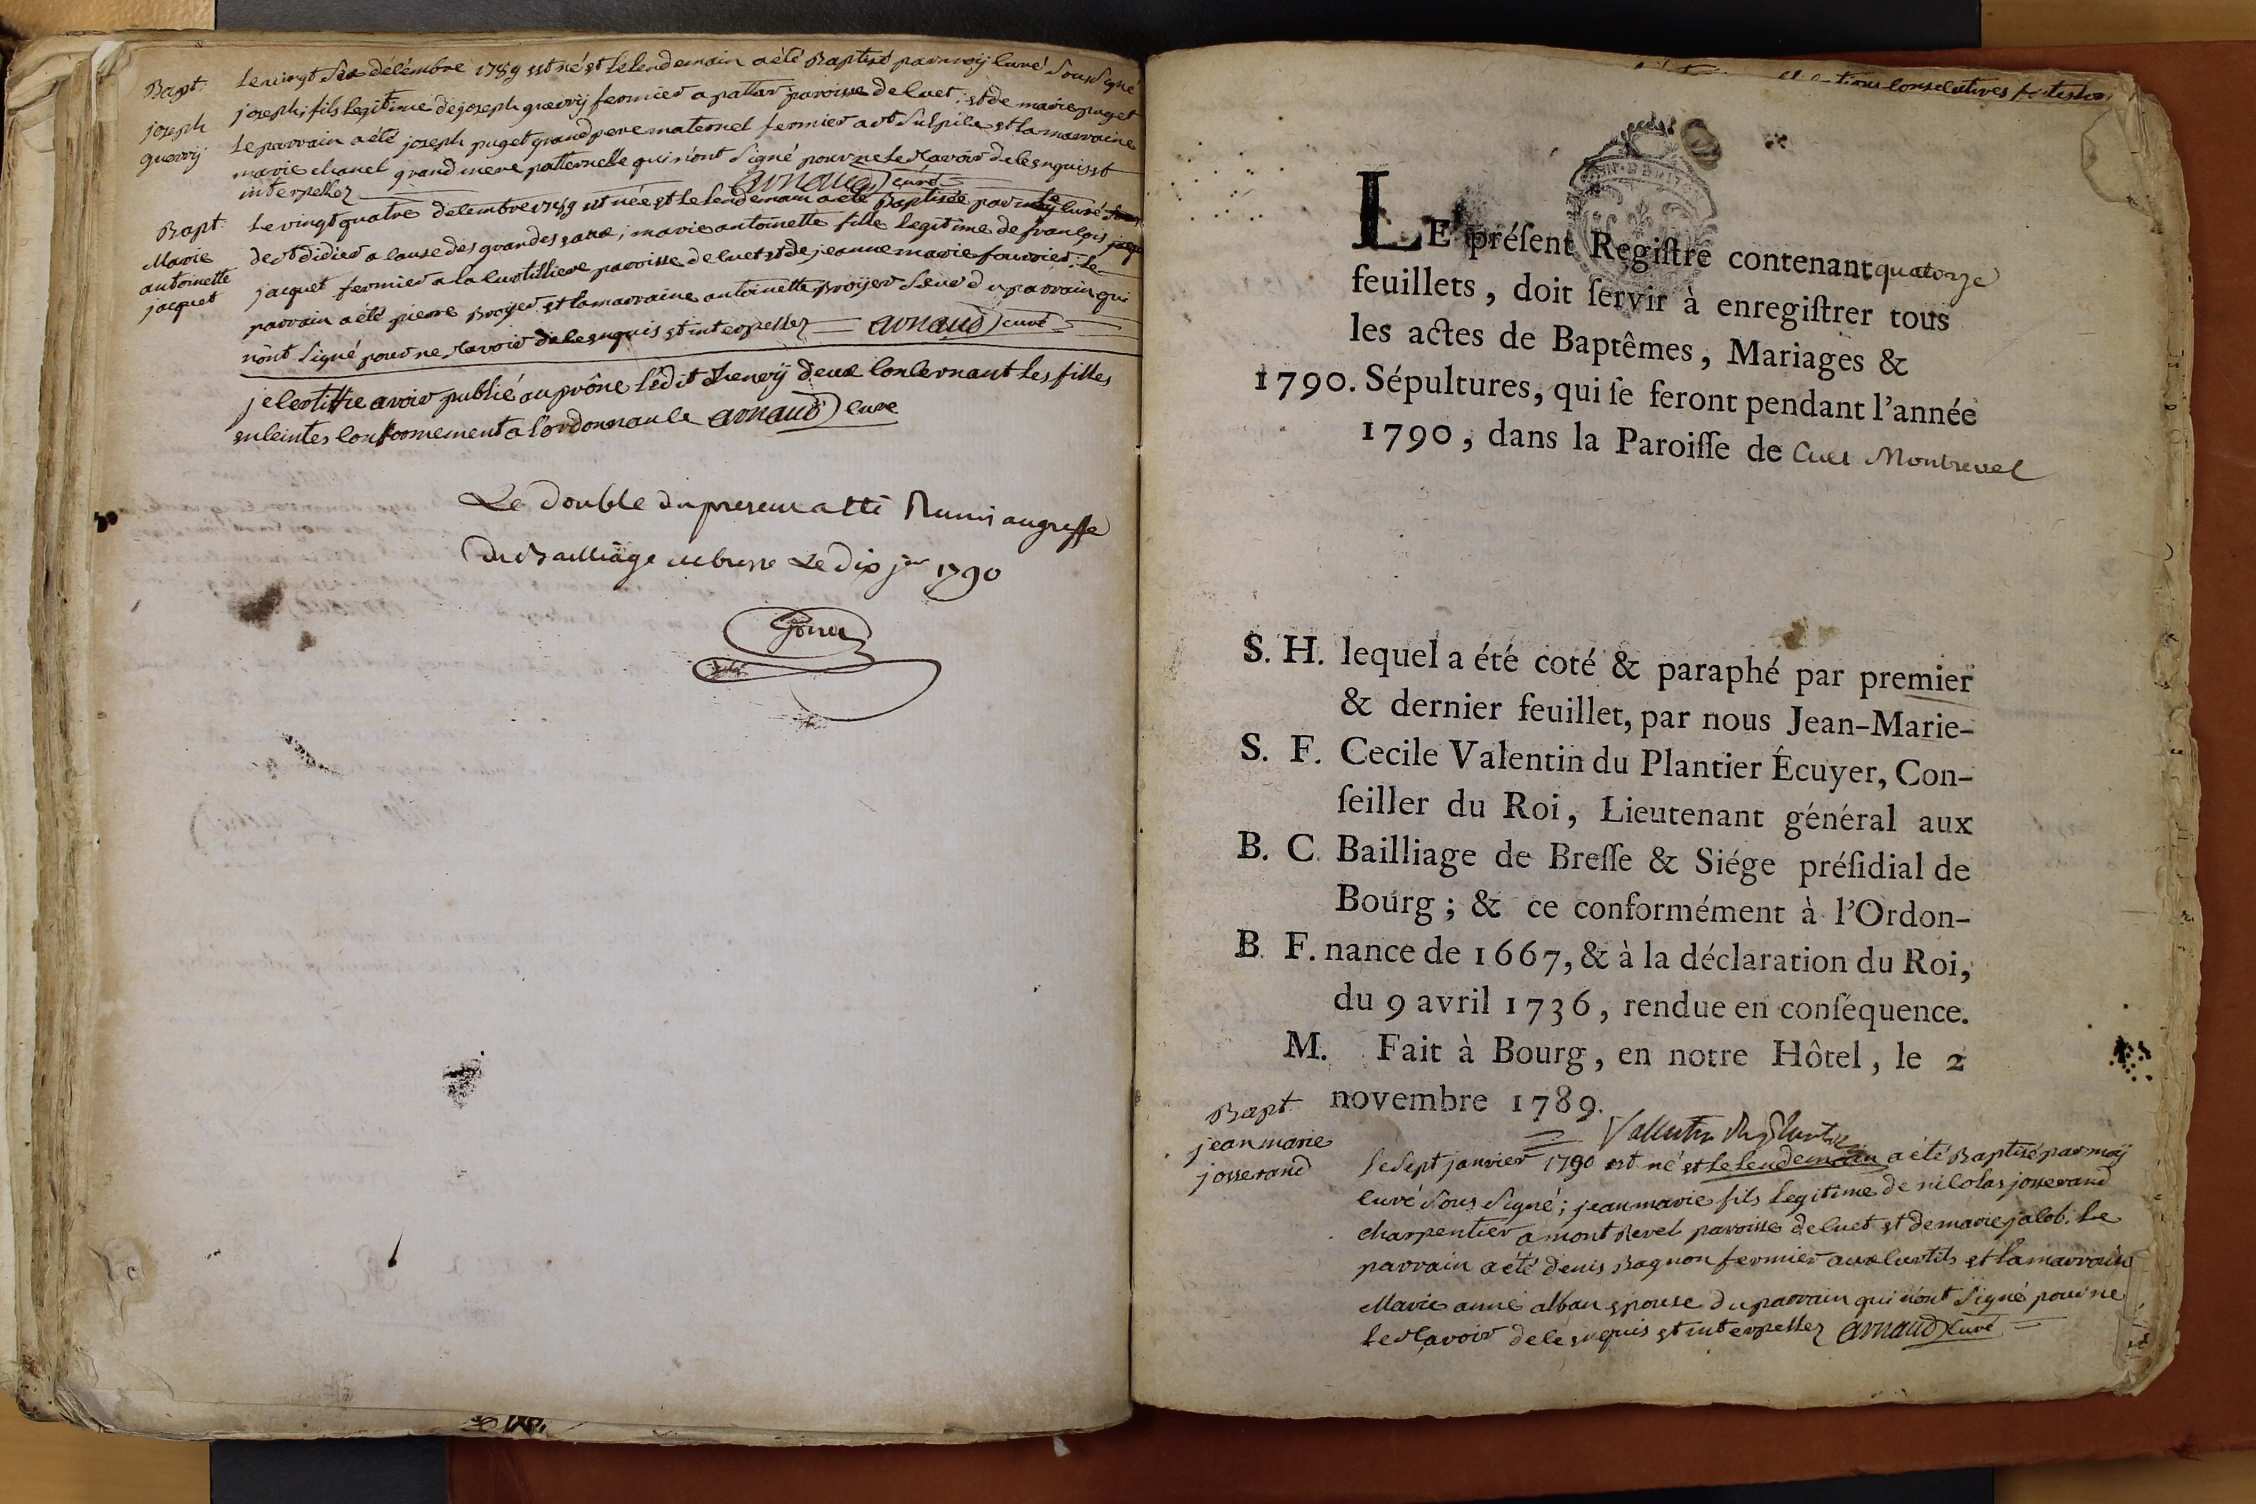 Bapt.
joseph
querrÿ
Le vingt six decembre 1789 est né et le lendemain a été Baptisé par moÿ curé sous signé
joseph, fils legitime de joseph querrÿ fermier a pattar paroisse de cuet, et de marie puget
Le parrain a été joseph puget grand pere maternel fermier a st Sulpice et la marraine
marie chanel grand mere patternelle qui n'ont signé pour ne le savoir de ce enquis et
interpellez arnaud curé
Bapt.
Marie
antoinette
jacquet
Le vingt quatre decembre 1789 est née et le lendemain a été Baptisée par le curé
de st didier a cause des grandes eaux, marie antoinette fille legitime de françois
jacquet fermier a la curtilliere paroisse de cuet et de jeanne marie fournier; Le
parrain a été pierre Broyer et la marraine antoinette Broÿer seur du parrain qui
n'ont signé pour ne savoir de ce enquis et interpellez arnaud curé
je certiffie avoir publié au prône l'édit d'henrÿ deux concernant les filles
enceintes conformement a l'ordonnance arnaud cure
Le double du present a été Remis au greffe
du Bailliage de bresse Le dix jer 1790
LE préſent Regiſtre contenant quatorze
feuillets, doit ſervir à enregiſtrer tous
les actes de Baptêmes, Mariages &
1790. Sépultures, qui ſe feront pendant l'année
1790, dans la Paroiſſe de Cuet Montrevel
S. H. lequel a été coté & paraphé par premier
& dernier feuillet, par nous Jean-Marie-
S. F. Cecile Valentin du Plantier Écuyer, Con-
ſeiller du Roi, Lieutenant général aux
B. C. Bailliage de Breſſe & Siége préſidial de
Bourg; & ce conformément à l'Ordon-
B. F. nance de 1667, & à la déclaration du Roi,
du 9 avril 1736, rendue en conſéquence.
M. Fait à Bourg, en notre Hôtel, le 2
novembre 1789.
Bapt.
jean marie
josserand
Le sept janvier 1790 est né et le lendemain a été Baptisé par moÿ
curé sous signé; jean marie fils legitime de nicolas josserand
charpentier a mont Revel paroisse de cuet et de marie jacob. Le
parrain a été denis Bagnon fermier aux curtils et la marraine
Marie anne alban epouse du parrain qui n'ont signé pour ne
le savoir de ce enquis et interpellez arnaud curé